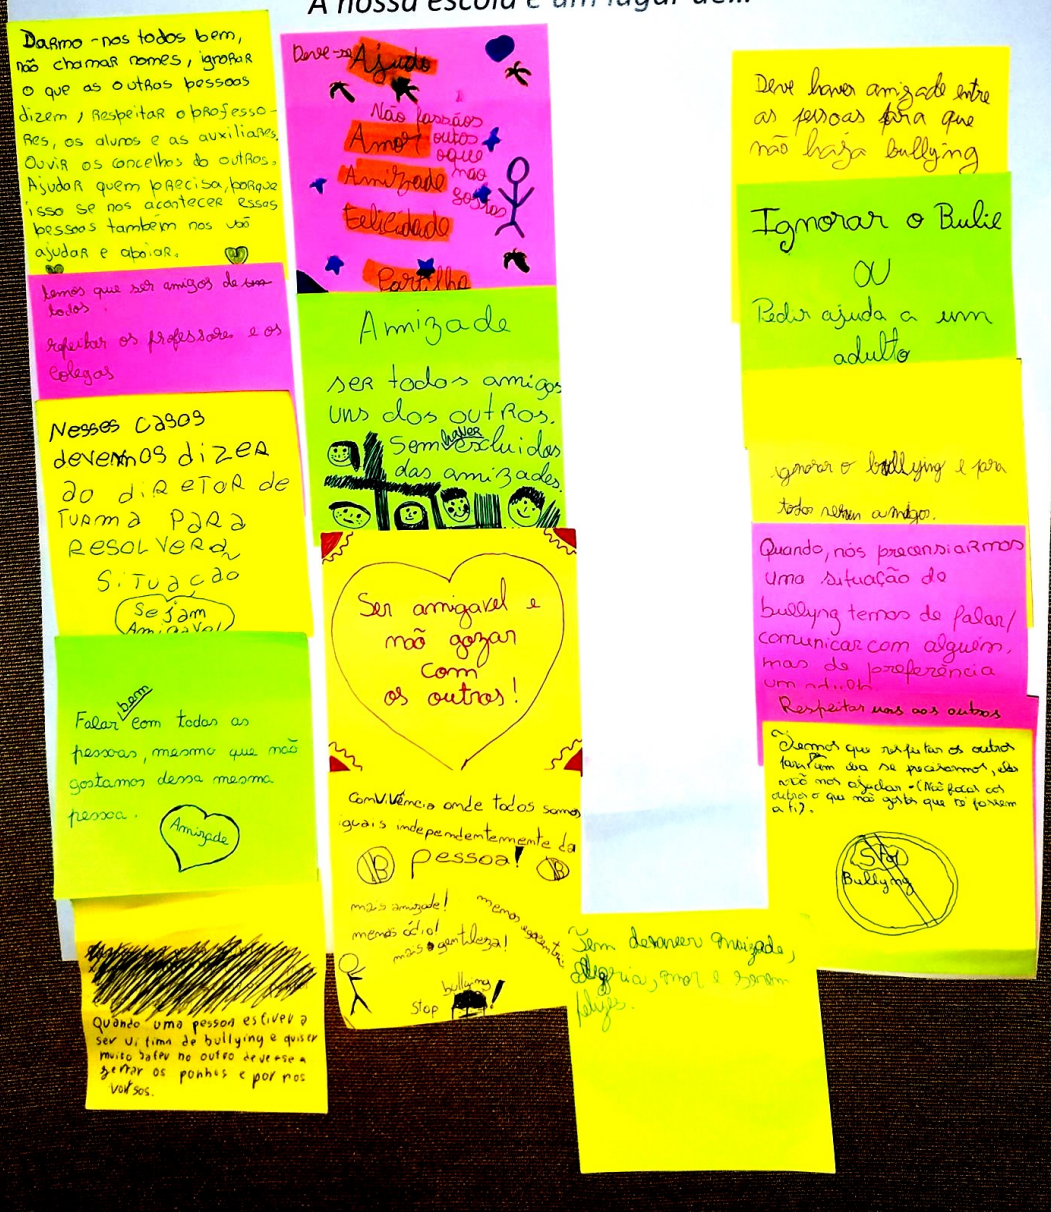 A nossa escola é um lugar de...
Darmo-nos todos bem,
não chamar nomes, ignorar
o que as outras pessoas
dizem, Respeitar o professo-
res, os alunos e as auxiliares,
Ouvir os concelhos do outros.
Ajudar quem precisa, porque
isso se nos acontecer essas
pessoas também nos vão
ajudar e apoiar.
temos que ser amigos de
todos.
respeitar os professores e os
colegas
Nesses casos
devemos dizer
ao diretor de
turma para
resolver a
situação
Sejam
Amigável
Falar bem com todas as
pessoas, mesmo que não
gostamos dessa mesma
pessoa.
Amizade
Quando uma pessoa estiver a
ser vitima de bullying e quiser
muito bater no outro deve-se
serrar os punhos e por nos
Deve-se Ajuda
Não fassãos
Amor outos
oque
Amizade não
gostas
Felicidade
Partilha
Amizade
ser todos amigos
uns dos outros.
Sem haver excluidos
das amizades.
Ser amigavel e
não gozar
com
os outros!
ComViVência onde todos somos
iguais independentemente da
B pessoa! B
mais amizade!
menos ódio!
mais gentileza!
menos
bullying
Stop !
Tem de haver amizade,
alegria, amor e serem
felizes.
Deve haver amizade entre
as pessoas para que
não haja bullying
Ignorar o Bulie
ou
Pedir ajuda a um
adulto
ignorar o bullying e para
todos serem amigos.
Quando, nós presensiarmos
uma situação de
bullyng temos de falar/
comunicar com alguém,
mas de preferência
um adulto.
Respeitar uns aos outros
Temos que respeitar os outros
também se precisarmos, eles
vão nos ajudar. (Não faças aos
outros o que não gostas que te fassem
a ti).
Stop
Bullyng